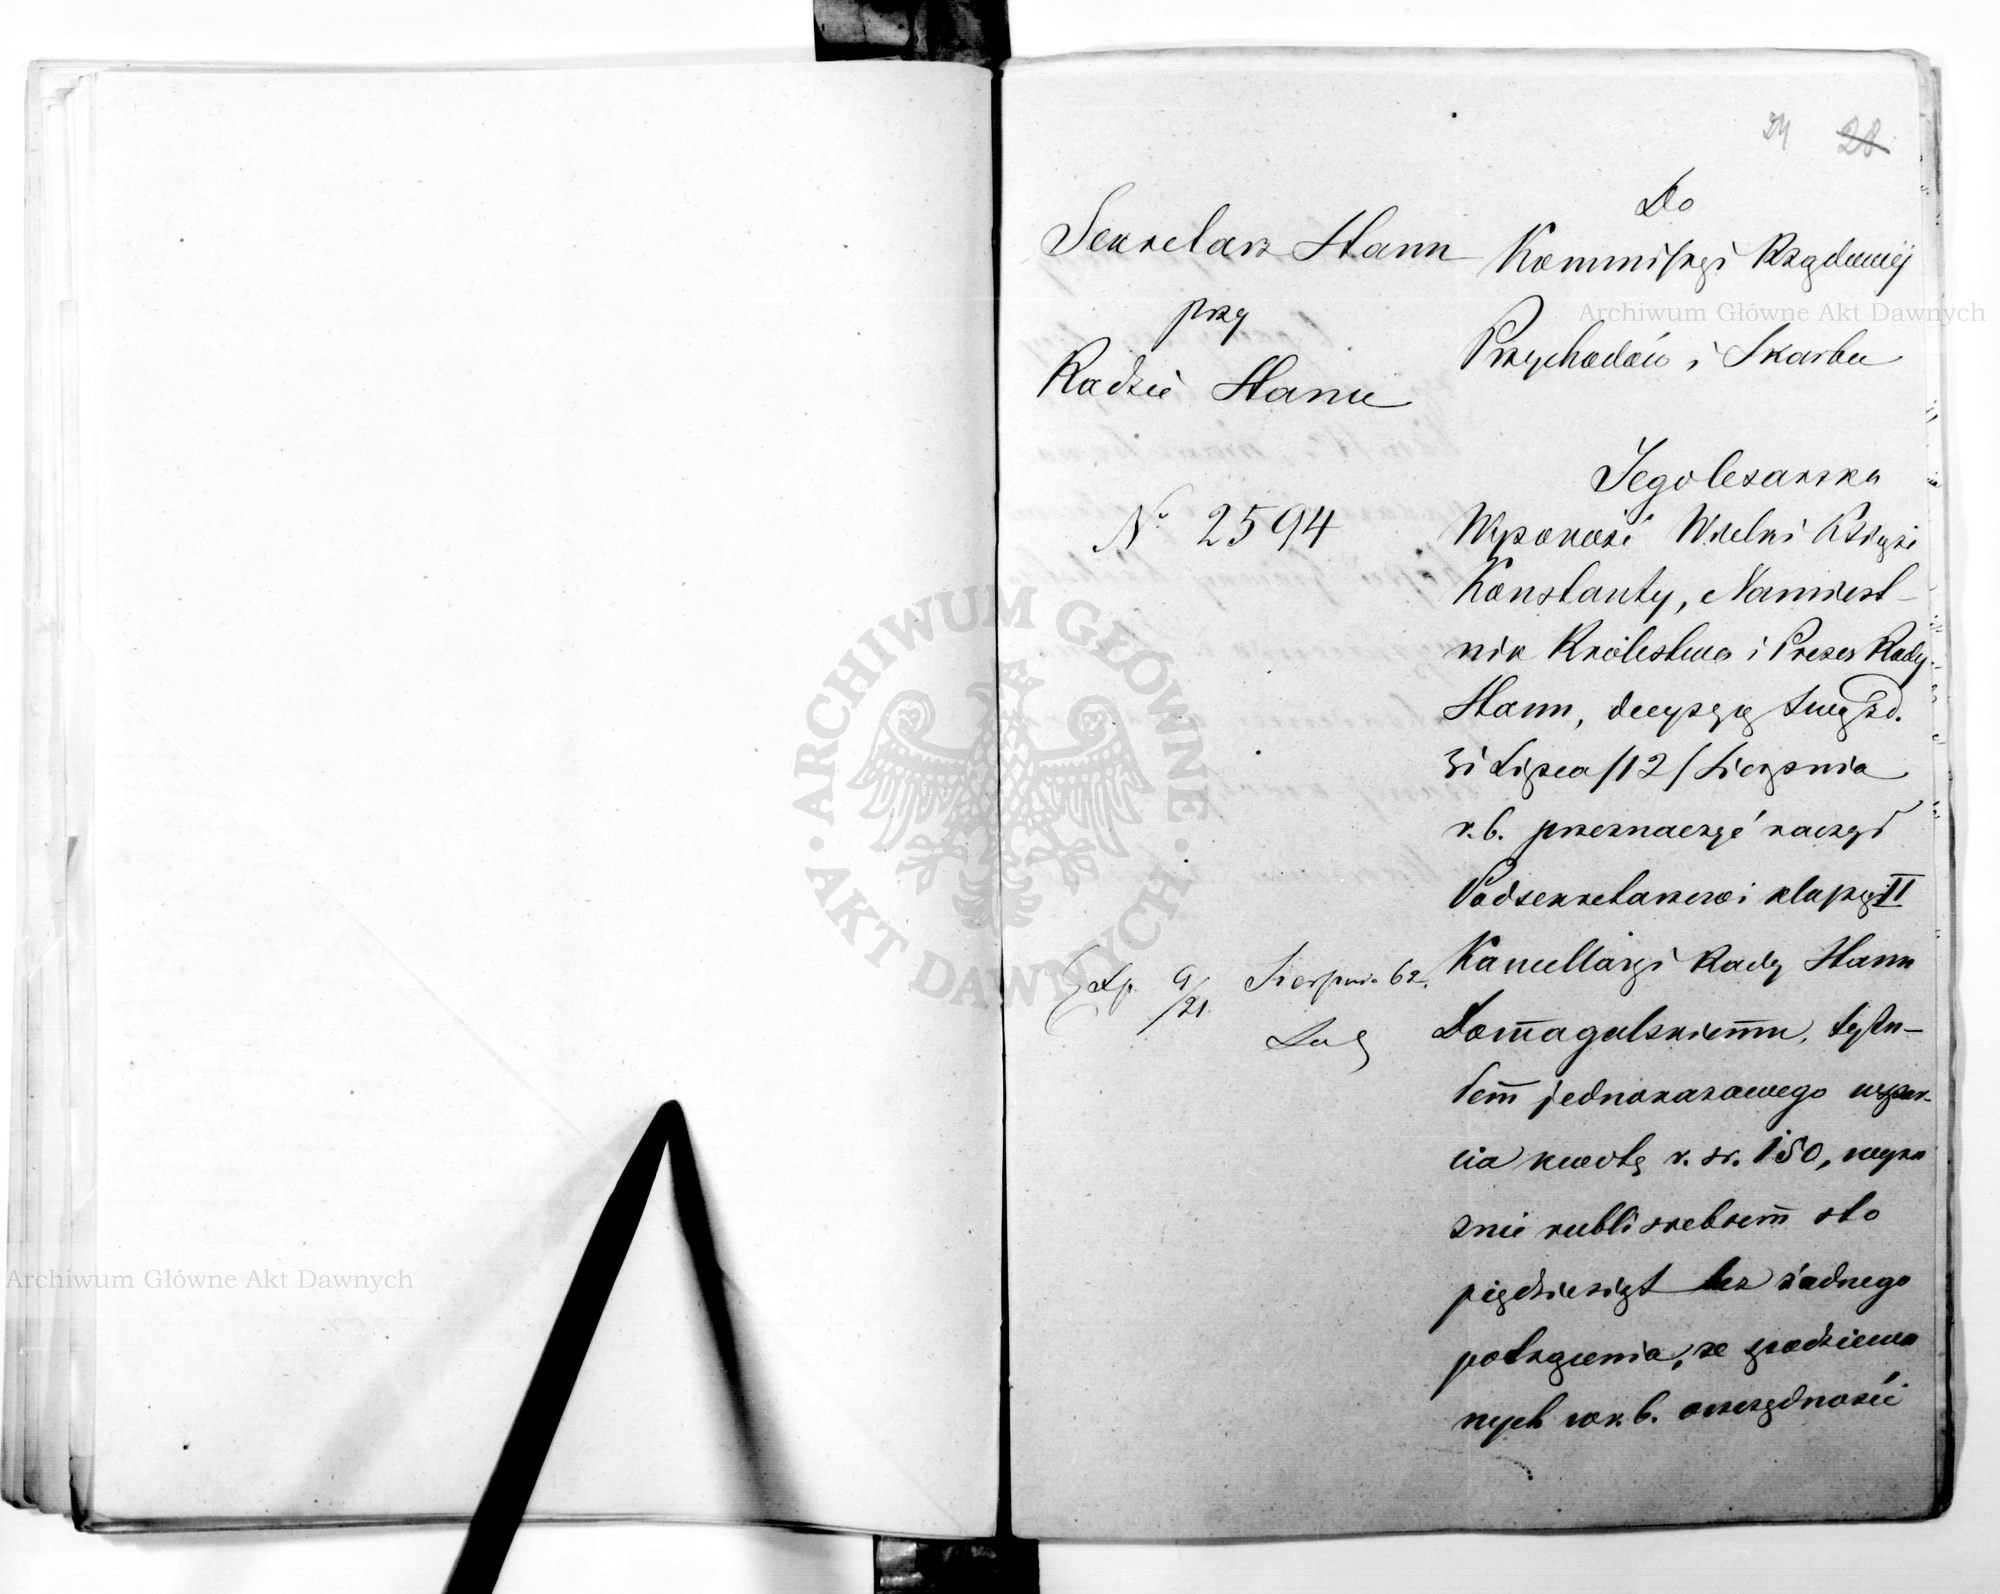 24 28
Sekretarz Stanu
przy
Radzie Stanu
Nº 2594
Exp. 9/21 Sierpnia 62.
Do
Kommissyi Rządowéj
Przychodów i Skarbu
Jego Cesarska
Wysokość Wielki Książe
Konstanty, Namiest-
nik Królestwa i Prezes Rady
Stanu, decyzyą swą z d.
31 Lipca /12/ Sierpnia
r. b. przeznaczyć raczył
Podsekretarzowi klassy II
Kancellaryi Rady Stanu
Domagalskiemu, tytu-
łem jednorazowego wspar-
cia kwotę r. sr. 150, wyra
znie rubli srebrem sto
pięćdziesiąt bez żadnego
potrącenia, ze spodziewa
nych w r. b. oszczędności
Archiwum Główne Akt Dawnych
Archiwum Główne Akt Dawnych
ARCHIWUM GŁÓWNE · AKT DAWNYCH ·